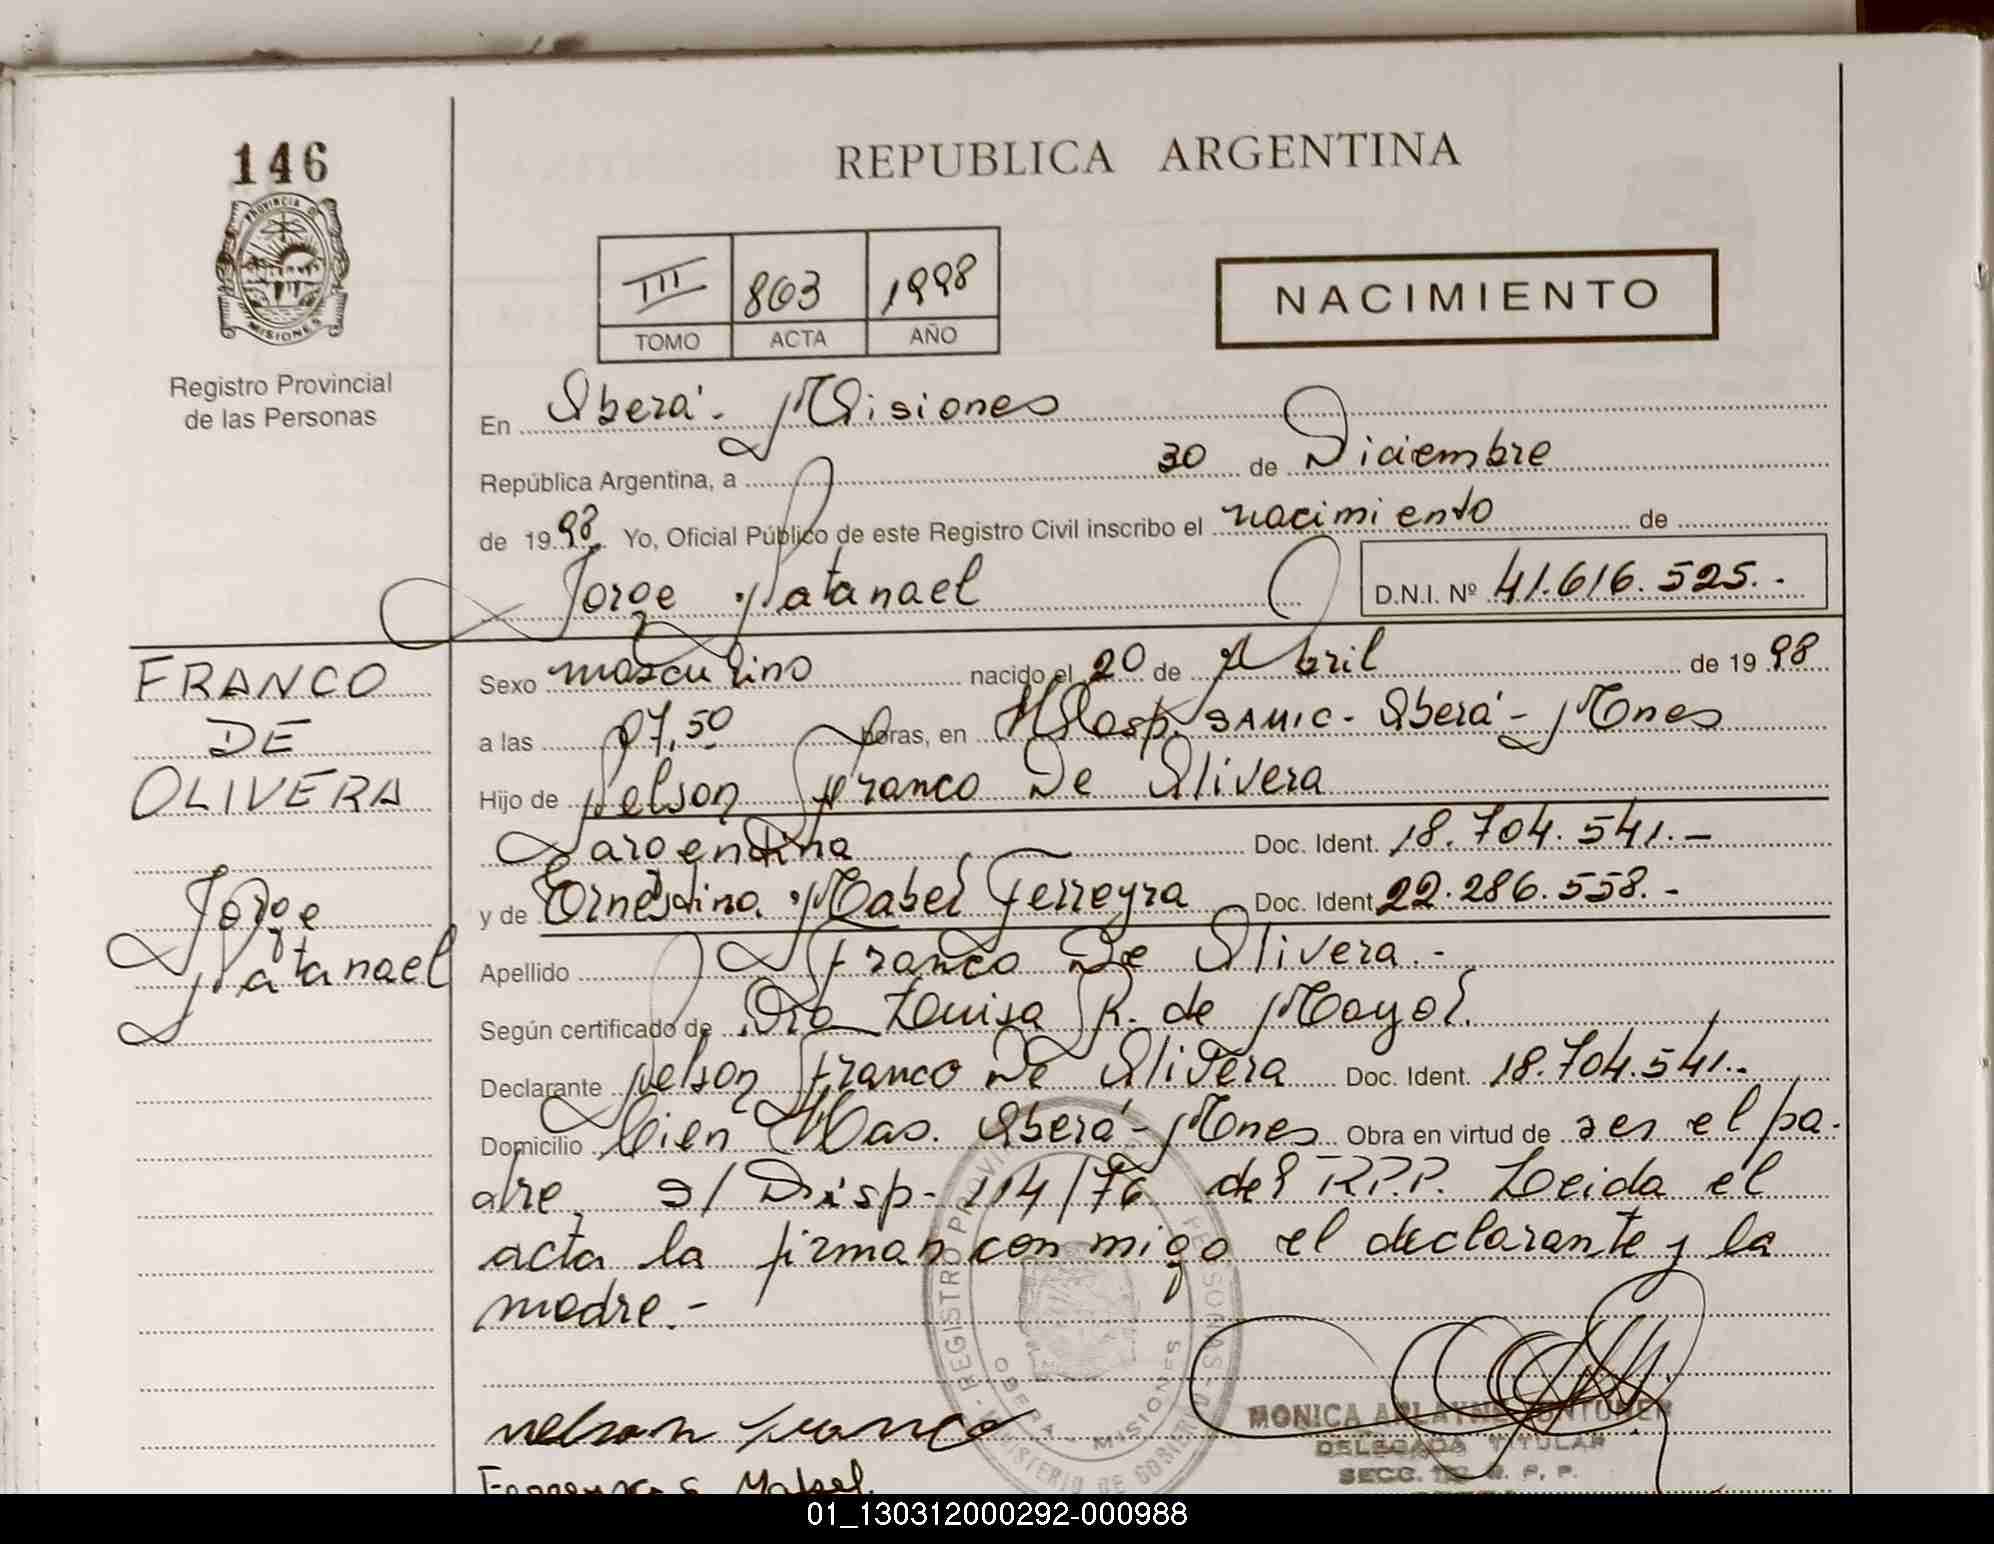 146
REPUBLICA ARGENTINA
PROVINCIA D
MISIONES
Registro Provincial
de las Personas
III 863 1998
TOMO ACTA AÑO
NACIMIENTO
En Oberá - Misiones
República Argentina, a 30 de Diciembre
de 1998 Yo, Oficial Público de este Registro Civil inscribo el nacimiento de
Jorge Natanael D.N.I. Nº 41.616.525.-
FRANCO
DE
OLIVERA
Jorge
Natanael
Sexo masculino nacido el 20 de Abril de 1998
a las 07,50 horas, en Hosp. SAMIC - Oberá - Mnes
Hijo de Nelson Franco De Olivera
argentina Doc. Ident. 18.704.541.-
y de Ernestina Mabel Ferreyra Doc. Ident. 22.286.558.-
Apellido Franco De Olivera.-
Según certificado de Dra Luisa R. de Mayol.
Declarante Nelson Franco De Olivera Doc. Ident. 18.704.541.-
Domicilio Cien Has. Oberá - Mnes Obra en virtud de ser el pa-
dre s/ Disp. 114/76 del R.P.P. Leida el
acta la firman con migo el declarante y la
madre.-
REGISTRO PROVINCIAL PERSONAS
OBERA - MISIONES
MINISTERIO DE GOBIERNO
nelson franco
MONICA
DELEGADA TITULAR
SECC. R. P. P.
Mabel
01_130312000292-000988